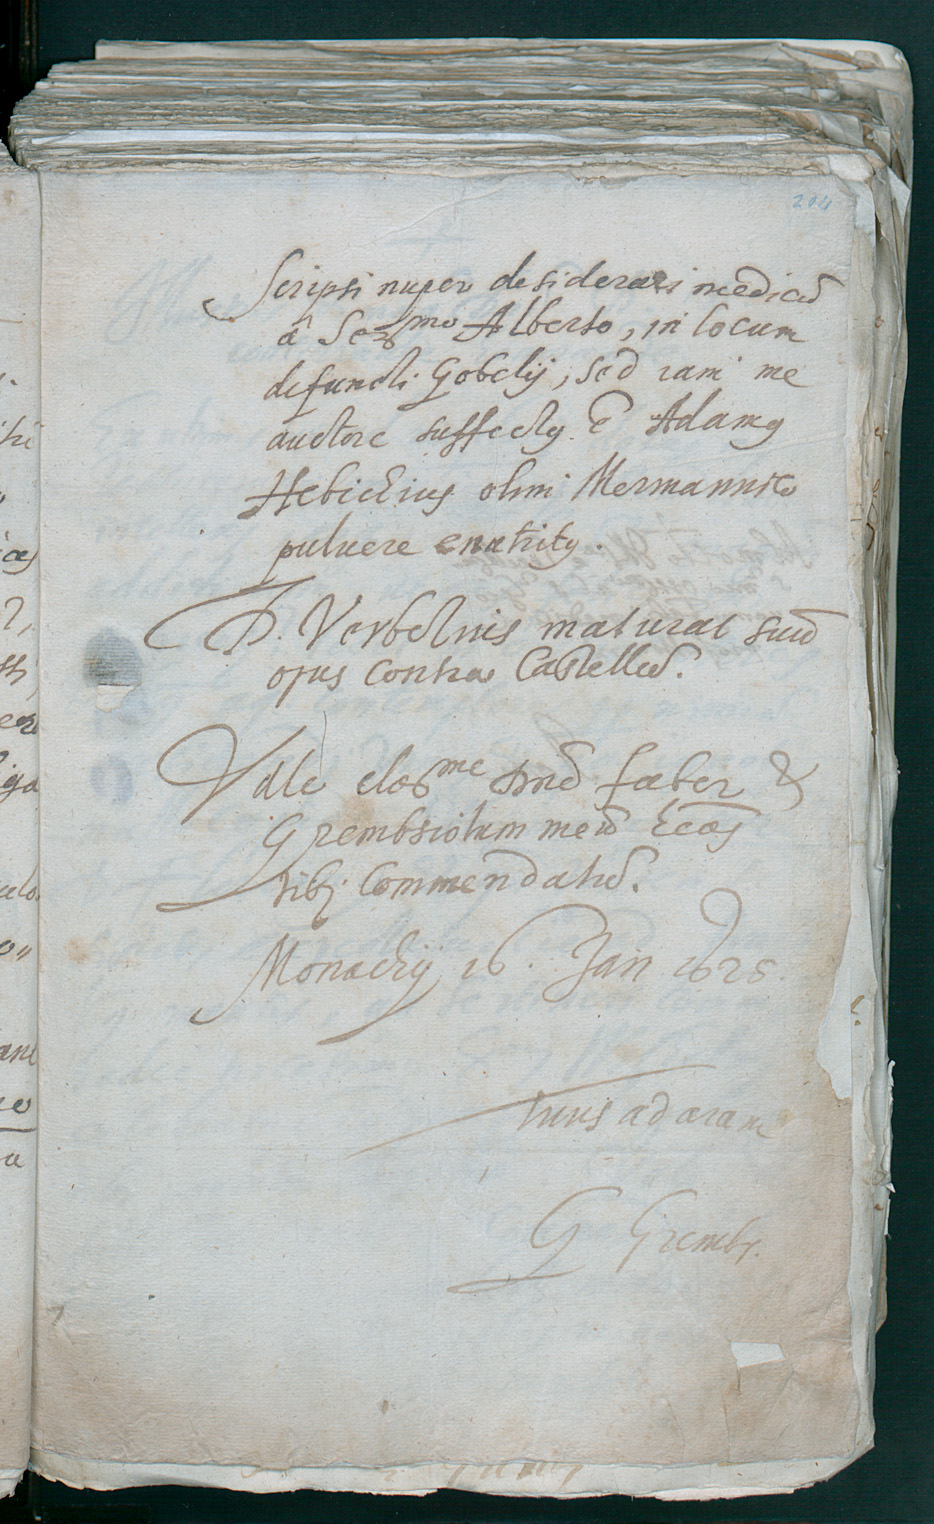 204
Scripsi nuper desiderari medicū
â Sermo Alberto, in locum
defuncti Gobelij, sed iam me
auctore suffectꝰ ē Adamꝰ
Hebichius olim Mermannico
puluere enutritꝰ.
D. Verbelius maturat suū
opus contra Castellū.
Vale clarme dnē faber &
Grembsiolum meū
tibj Commendatū.
Monachij 16. Jan 1625
tuus ad aram
G Grembs.